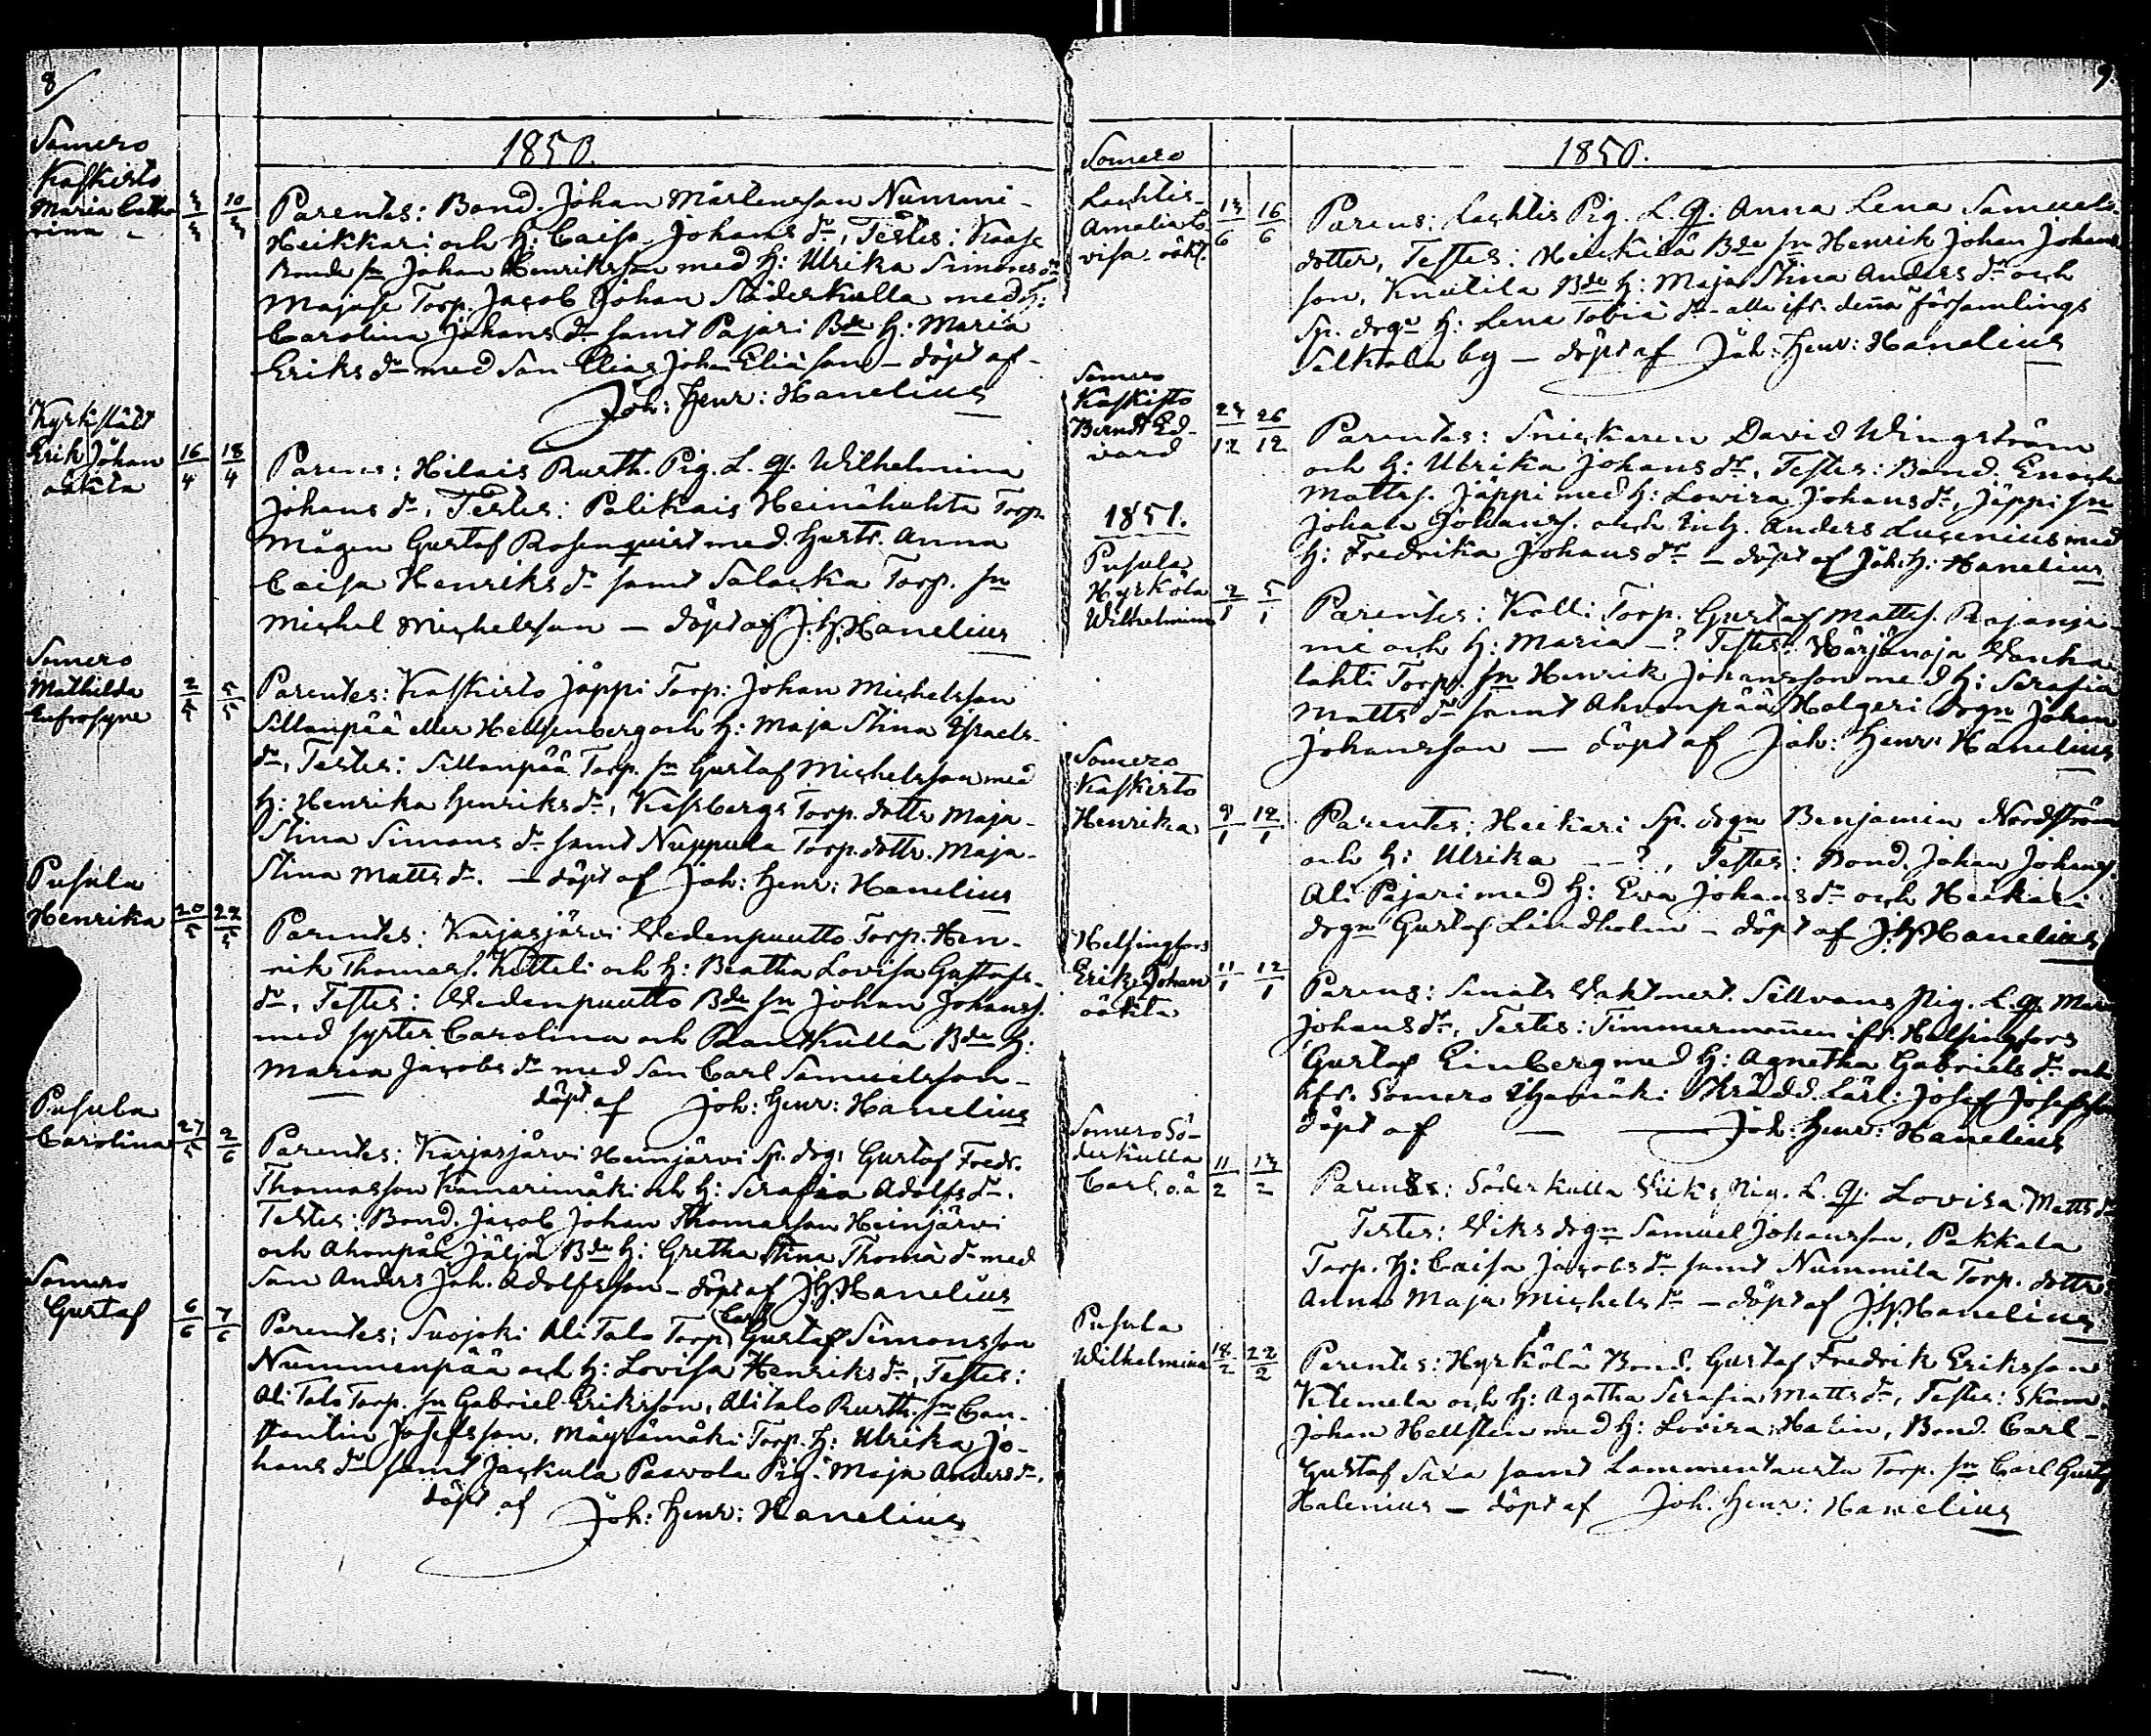 8
1850.
Somero
Kaskisto
Maria Catha
rina
4/4 10/4
Parentes: Bond. Johan Mårtensson Nummi-
Heikkari och H: Caisa Johans dr, Testes: Kaase
Bonde sn Johan Henriksson med H: Ulrika Simons dr
Majase Torp. Jacob Johan Söderkulla med H:
Carolina Johans dr samt Pajari Bde H: Maria
Eriks dr med Son Elias Johan Eliä son – döpt af –
Joh: Henr: Hanelius
Kyrkslätt
Erik Johan
oäkta
16/4 18/4
Parens: Hilais Rusth. Pig. L. q. Wilhelmina
Johans dr, Testes: Palikais Heinähuhta Torp.
Mågen Gustaf Rosenquist med Hustr. Anna
Caisa Henriks dr samt Salacka Torp. sn
Michel Michelsson – döpt af J.H. Hanelius
Somero
Mathilda
Eufrosyne
2/5 5/5
Parentes: Kaskisto Jäppi Torp: Johan Michelsson
Sillanpää eller Hellsenberg och H: Maja Stina Israels-
dr, Testes: Sillanpää Torp. sn Gustaf Michelsson med
H: Henrika Henriks dr, Kassbergs Torp. dottr Maja
Stina Simons dr samt Nuppula Torp. dottr. Maja-
Stina Matts dr. – döpt af Joh: Henr: Hanelius
Pusula
Henrika
20/5 22/5
Parentes: Karjasjärvi Wedenpuutto Torp. Hen-
rik Thomass. Kitteli och H: Beatha Lovisa Gustafs-
dr, Testes: Wedenpuutto Bde sn Johan Johanss.
med syster Carolina och Rantkulla Bde H:
Maria Jacobs dr med Son Carl Samuelsson –
döpt af Joh: Henr: Hanelius
Pusula
Carolina
27/5 2/6
Parentes: Karjasjärvi Heinjärvi Sp. drg: Gustaf Fredr.
Thomasson Kamarimäki och H: Serafia Adolfs dr.
Testes: Bond. Jacob Johan Thomasson Heinjärvi
och Ahonpää Jäljä Bde H: Gretha Stina Thomä dr med
Son Anders Joh. Adolfsson – döpt af J.H. Hanelius
Somero
Gustaf
6/6 7/6
Parentes: Suojoki Ali Talo Torp. Carl Gustaf Simonsson
Nummenpää och H: Lovisa Henriks dr, Testes:
Ali Talo Torp. sn Gabriel Eriksson, Alitalo Rusth. sn Con-
stantin Josefsson, Mäyrämäki Torp. H: Ulrika Jo-
hans dr samt Jackula Paavola Pig. Maja Anders dr.
döpt af Joh: Henr: Hanelius
9.
1850.
Somero
Lachtis
Amalia Lo-
visa oäkt.
14/6 16/6
Parens: Lachtis Pig. L. q. Anna Lena Samuels-
dotter, Testes: Heickilä Bde sn Henrik Johan Johans
son, Knutila Bde H: Maja Stina Anders dr och
Sp. drgn H: Lena Tobiä dr – alla ifr. denna församlings
Salkola by – döpt af Joh: Henr: Hanelius
Somero
Kaskisto
Berndt Ed-
vard
24/12 26/12
Parentes: Snickaren David Wingström
och H: Ulrika Johans dr, Testes: Bond. Enoch
Mattss. Jäppi med H: Lovisa Johans dr, Jäppi sn
Johan Johanss. och Inh. Anders Lucenius med
H: Fredrika Johans dr – döpt af Joh: H: Hanelius
1851.
Pusula
Hyrkölä
Wilhelmina
2/1 5/1
Parentes: Kalli Torp. Gustaf Mattss. Rajanie
mi och H: Maria –? Testes: Härjänoja Wanha
lahti Torp. sn Henrik Johansson med H: Serafia
Matts dr samt Ahonpää Holgeri drgn Johan
Johansson – döpt af Joh: Henr: Hanelius
Somero
Kaskisto
Henrika
9/1 12/1
Parentes: Heikari Sp. drgn Benjamin Nordström
och H: Ulrika – –?, Testes: Bond. Johan Johans.
Ali Pajari med H: Eva Johans dr och Heikari
drgn Gustaf Lindholm – döpt af J.H. Hanelius
Helsingfors
Erik Johan
oäkta
11/1 12/1
Parens: Senats Vaktmest. Sillvans Pig. L. q. Maria
Johans dr, Testes: Timmermannen ifr: Helsingfors
Gustaf Einberg med H: Agnetha Gabriels dr och
ifr. Somero Skrädd. Lärl: Josef Josefsson
döpt af Joh: Henr: Hanelius
Somero Sö-
derkulla
Carl, o.ä
11/2 14/2
Parens: Söderkulla Wiks Pig. L. q. Lovisa Matts dr
Testes: Wiks drgn Samuel Johansson, Pakkala
Torp. H: Caisa Jacobs dr samt Nummila Torp. dottr
Anna Maja Michels dr – döpt af J.H. Hanelius
Pusula
Wilhelmina
18/2 22/2
Parentes: Hyrkölä Bond. Gustaf Fredrik Eriksson
Klemela och H: Agatha Serafia Matts dr, Testes: Skom.
Johan Hellsten med H: Lovisa Halin, Bond. Carl
Gustaf Saxa samt Lammentausta Torp. sn Carl Gustaf
Halenius – döpt af Joh. Henr: Hanelius